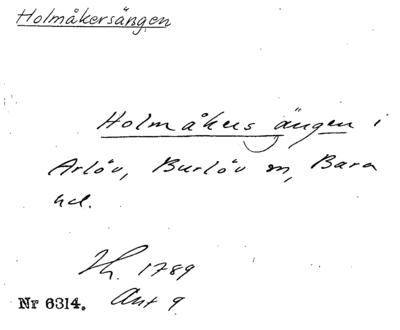 Holmåkersängen
Holmåkers ängen i
Arlöv, Burlöv sn, Bara
hd.
Lh. 1789
Nr 6314. Akt 9